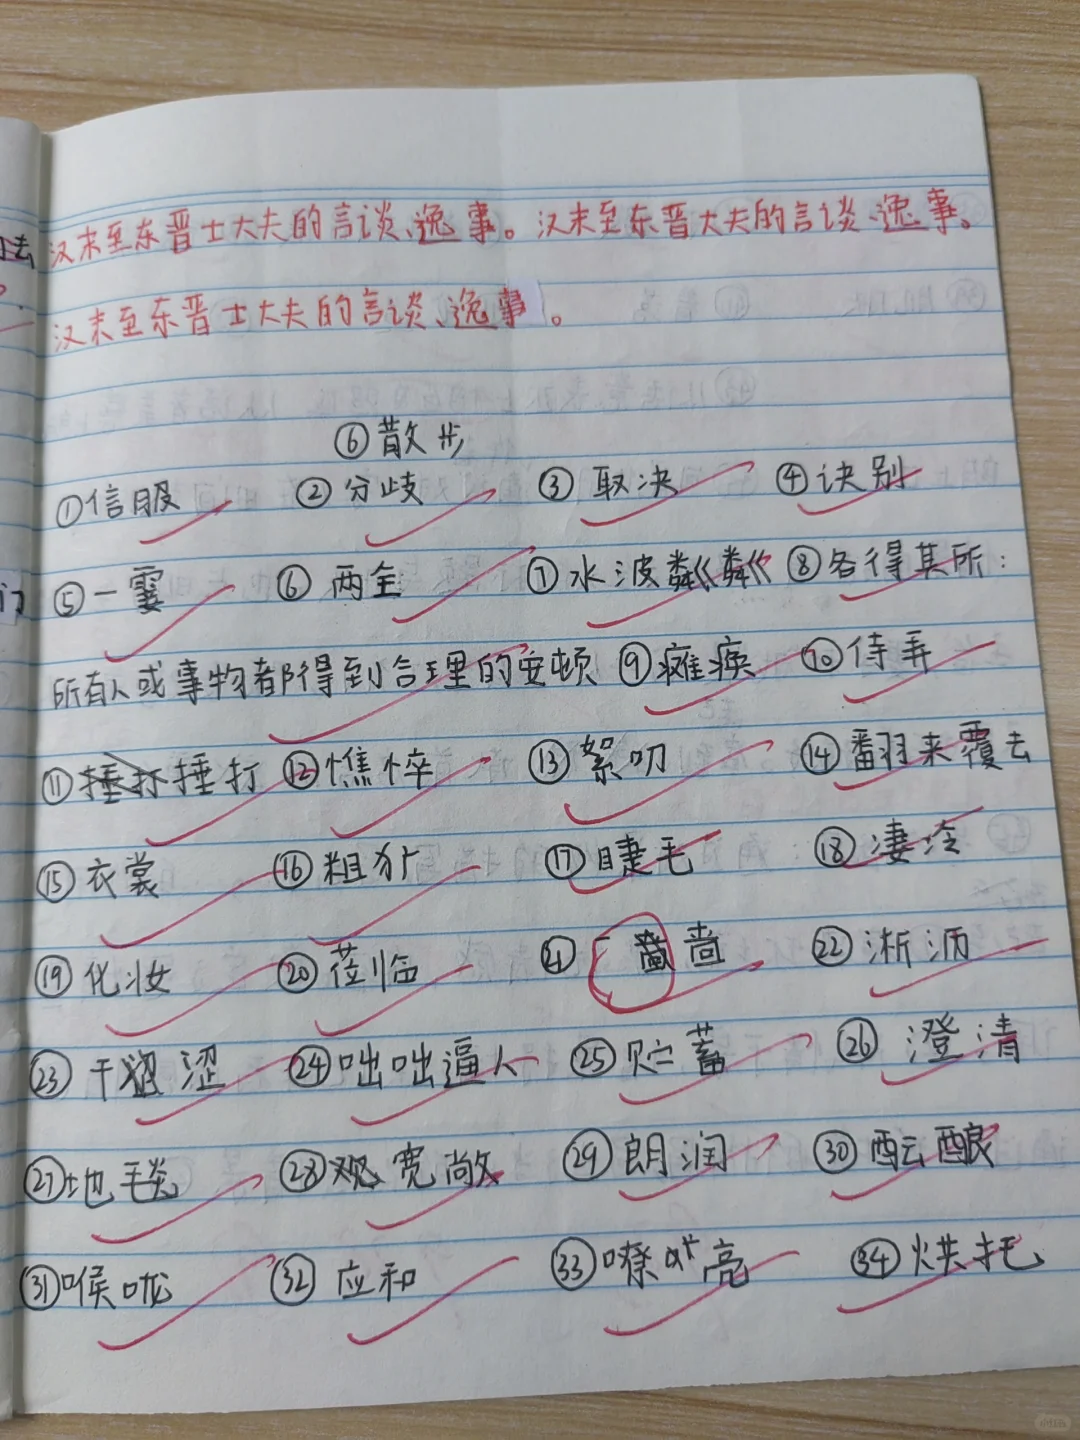 汉末至东晋士大夫的言谈、逸事。汉末至东晋大夫的言谈、逸事。
汉末至东晋士大夫的言谈、逸事。
⑥散步
①信服 ②分歧 ③取决 ④诀别
⑤一霎 ⑥两全 ⑦水波粼粼 ⑧各得其所：
所有人或事物都得到合理的安顿 ⑨瘫痪 ⑩侍弄
⑪捶打 ⑫憔悴 ⑬絮叨 ⑭翻来覆去
⑮衣裳 ⑯粗犷 ⑰睫毛 ⑱凄冷
⑲化妆 ⑳莅临 ㉑啬 ㉒淅沥
㉓干涩 ㉔咄咄逼人 ㉕贮蓄 ㉖澄清
㉗地毯 ㉘宽敞 ㉙朗润 ㉚酝酿
㉛喉咙 ㉜应和 ㉝嘹亮 ㉞烘托